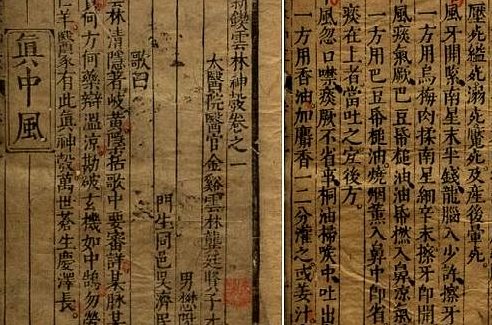 新鋟雲林神彀卷之一
太醫院醫官金谿雲林龔廷賢子才
男懋陞
門生同邑吳濟民
歌曰
雲林清隱著岐黃檃括歌中要審詳某脉某
何方何藥辯溫涼勘破玄機如中鵠勿勞
羊醫家有此真神彀萬世蒼生慶澤長。
眞中風
壓死縊死溺死魘死及產後暈死。
風牙關緊南星末半錢龍腦入少許擦牙
一方用烏梅肉揉南星細辛末擦牙即開
風痰氣厥巴豆帋槌油油帋撚入鼻凉氣
一方用巴豆帋槌油燒烟薰入鼻中即省
痰在上者當吐之宜後方。
風忽口噤痰厥不省事桐油掃喉中吐出
一方用香油加麝香一二分灌之或姜汁